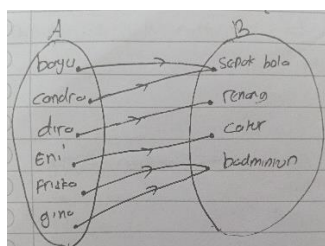 A
B
bayu
candra
dira
Eni
Friska
gina
sepak bola
renang
catur
badminton